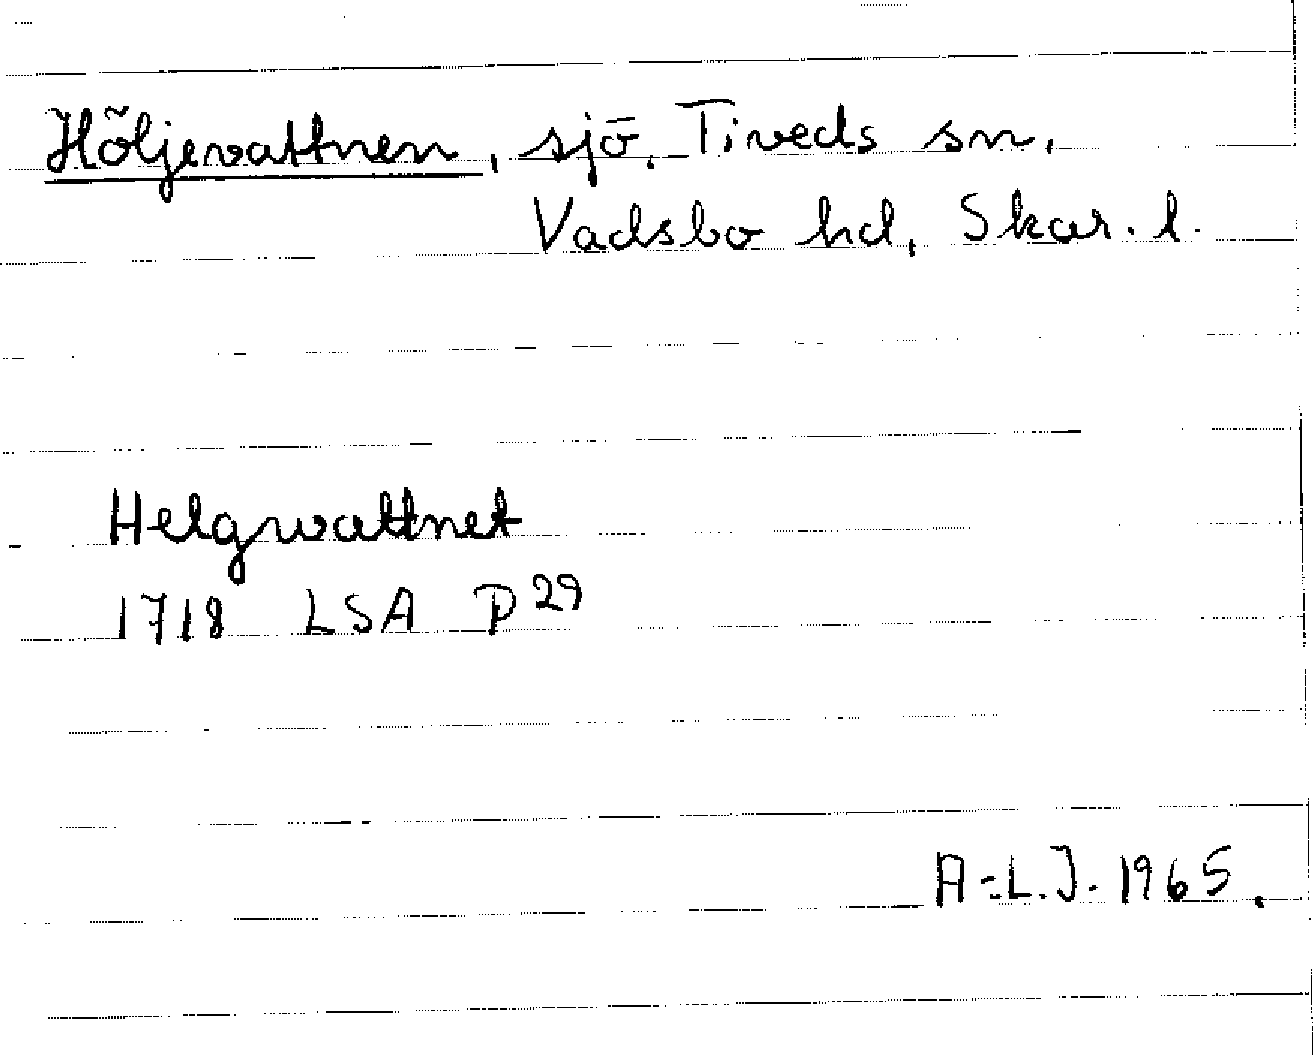 Höljevattnen, sjö. Tiveds sn,
Vadsbo hd, Skar. l.
Helgwattnet
1718 LSA P 29
A-L.J. 1965.